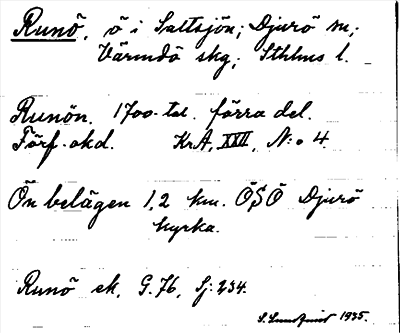 Runö, ö i Saltsjön; Djurö sn;
Värmdö skg; Sthlms l.
Runön. 1700-tal. förra del.
Förf. okd. KrA, XXII, N:o 4.
Ön belägen 1,2 km. ÖSÖ Djurö
kyrka.
Runö ek. G.76, Sj: 234.
S. Lundqvist 1935.